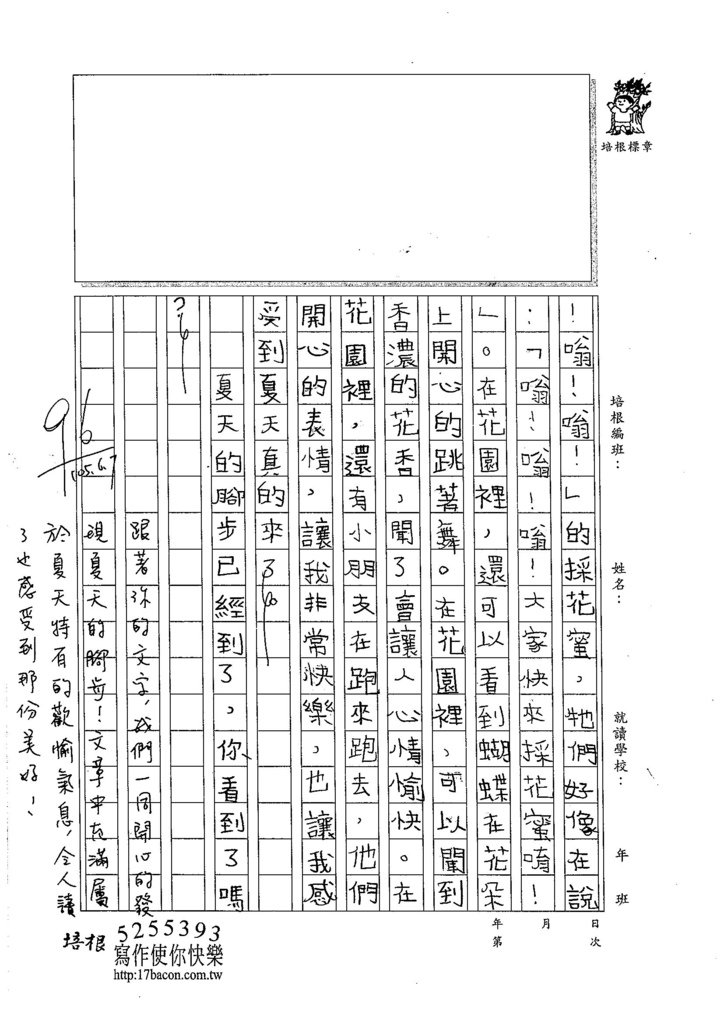 培根標章
培根編班：
姓名：
就讀學校：
年 班
日 月 年
次 第
！嗡！嗡！」的採花蜜，牠們好像在說
：「嗡！嗡！嗡！大家快來採花蜜唷！
」。在花園裡，還可以看到蝴蝶在花朵
上開心的跳著舞。在花園裡，可以聞到
香濃的花香，聞了會讓人心情愉快。在
花園裡，還有小朋友在跑來跑去，他們
開心的表情，讓我非常快樂，也讓我感
受到夏天真的來了。
夏天的腳步已經到了，你看到了嗎
？
跟著你的文字，我們一同開心的發
現夏天的腳步！文章中充滿屬
於夏天特有的歡愉氣息，令人讀
了也感受到那份美好！
96
105.6.7
培根 5255393
寫作使你快樂
http:17bacon.com.tw